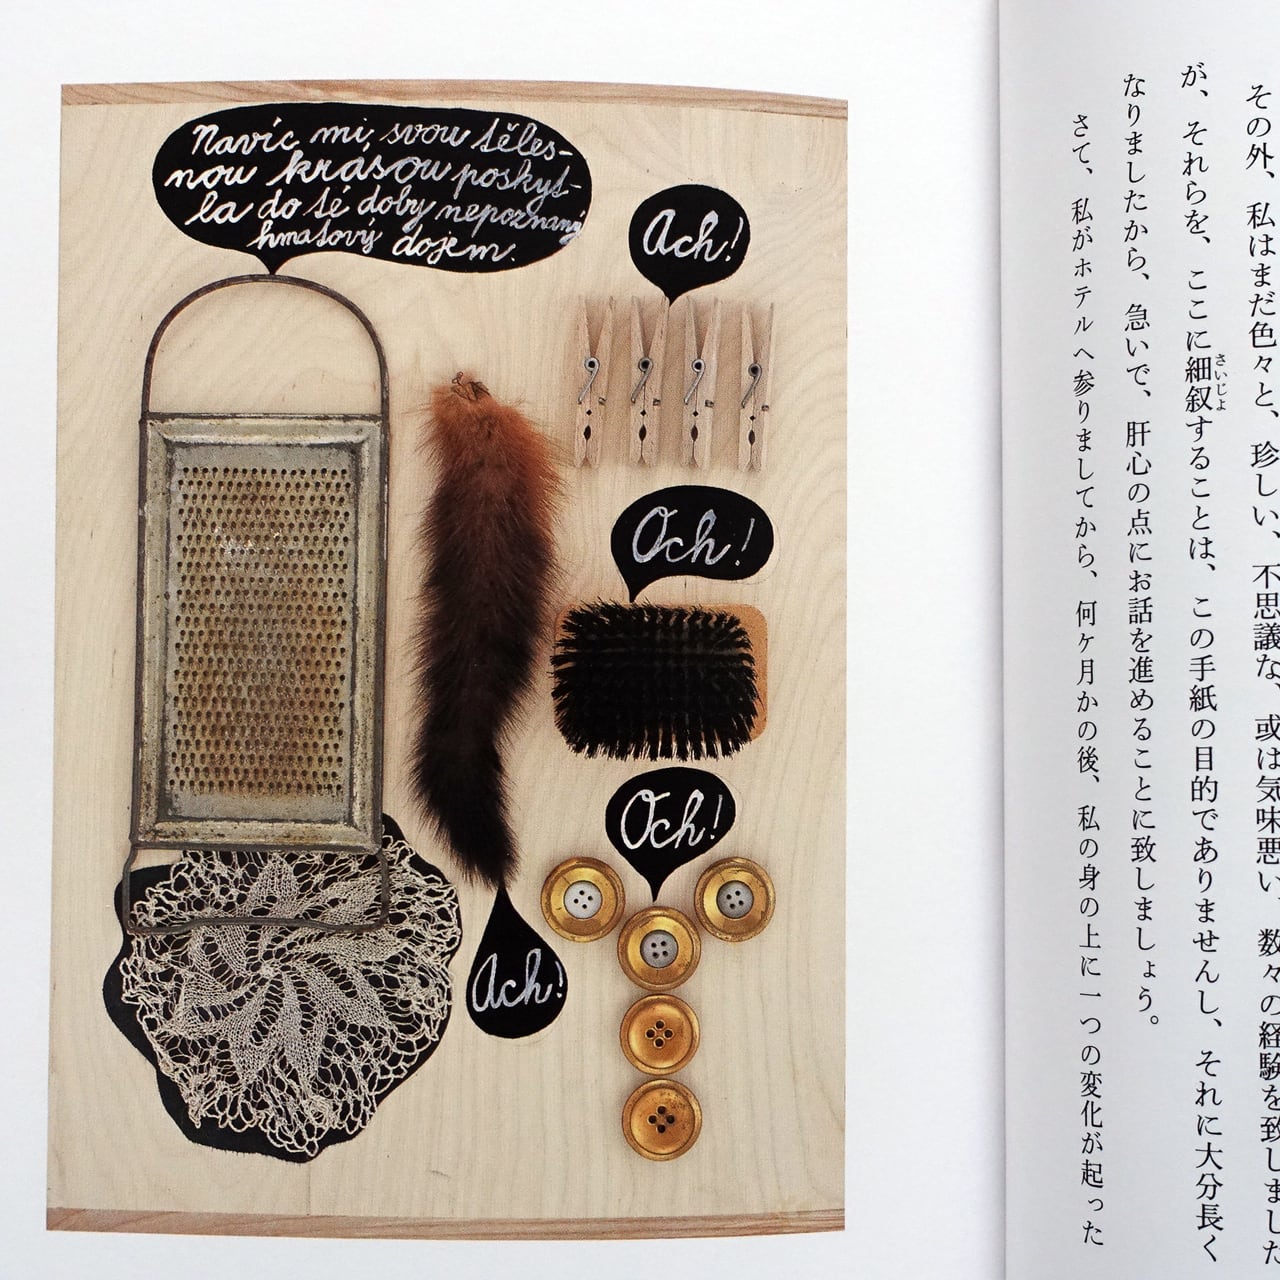 Navíc mi, svou těles-
nou krásou poskyt-
la do té doby nepoznaný
hmatový dojem.
Ach!
Och!
Och!
Ach!
その外、私はまだ色々と、珍しい、不思議な、或は気味悪い、数々の経験を致しました
が、それらを、ここに細叙することは、この手紙の目的でありませんし、それに大分長く
さいじよ
なりましたから、急いで、肝心の点にお話を進めることに致しましょう。
さて、私がホテルへ参りましてから、何ヶ月かの後、私の身の上に一つの変化が起った